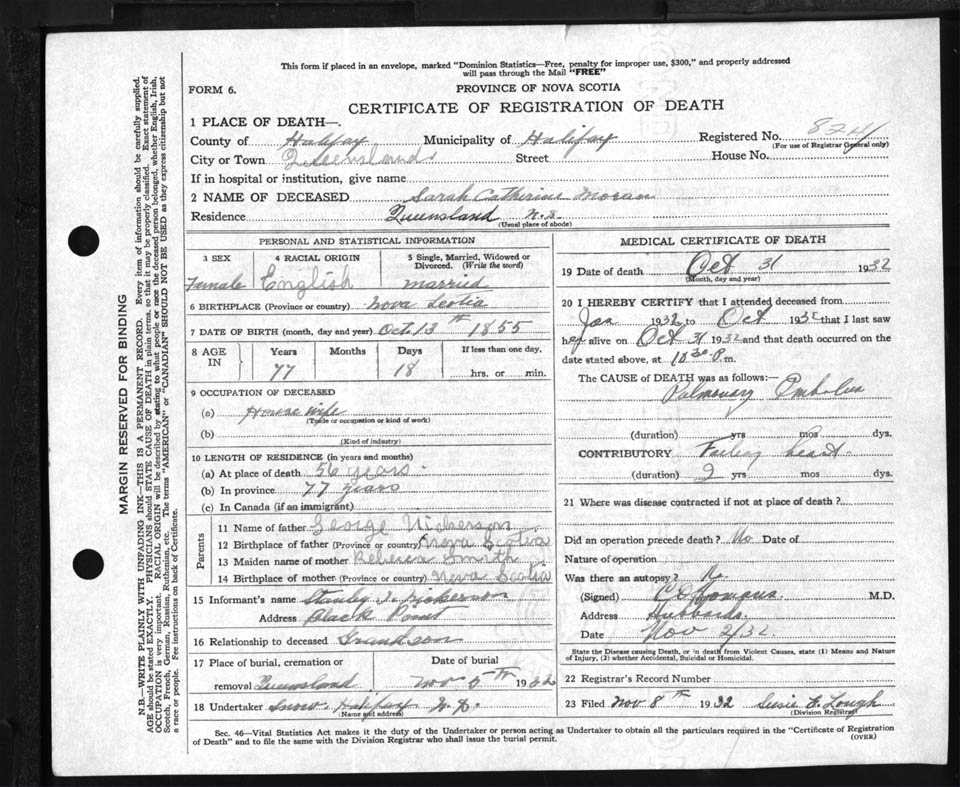 This form if placed in an envelope, marked "Dominion Statistics—Free, penalty for improper use, $300," and properly addressed
will pass through the Mail "FREE"
FORM 6.
PROVINCE OF NOVA SCOTIA
CERTIFICATE OF REGISTRATION OF DEATH
1 PLACE OF DEATH—
County of Halifax Municipality of Halifax Registered No. 8241
(For use of Registrar General only)
City or Town Queensland Street House No.
If in hospital or institution, give name
2 NAME OF DECEASED Sarah Catherine Moran
Residence Queensland N.S.
(Usual place of abode)
PERSONAL AND STATISTICAL INFORMATION
3 SEX 4 RACIAL ORIGIN 5 Single, Married, Widowed or
Divorced. (Write the word)
Female English married
6 BIRTHPLACE (Province or country) Nova Scotia
7 DATE OF BIRTH (month, day and year) Oct. 13th 1855
8 AGE IN Years Months Days If less than one day,
77 18 hrs. or min.
9 OCCUPATION OF DECEASED
(a) House wife
(Trade or occupation or kind of work)
(b)
(Kind of industry)
10 LENGTH OF RESIDENCE (in years and months)
(a) At place of death 56 years
(b) In province 77 years
(c) In Canada (if an immigrant)
Parents
11 Name of father George Nickerson
12 Birthplace of father (Province or country) Nova Scotia
13 Maiden name of mother Rebecca Smith
14 Birthplace of mother (Province or country) Nova Scotia
15 Informant's name Stanley J. Nickerson
Address Black Point
16 Relationship to deceased Grandson
17 Place of burial, cremation or Date of burial
removal Queensland Nov 5th 1932
18 Undertaker Snow Halifax N.S.
(Name and address)
MEDICAL CERTIFICATE OF DEATH
19 Date of death Oct 31 1932
(Month, day and year)
20 I HEREBY CERTIFY that I attended deceased from
Jan 1932 to Oct 1932 that I last saw
her alive on Oct 31 1932 and that death occurred on the
date stated above, at 10 30 P.m.
The CAUSE of DEATH was as follows:—
Pulmonary Embolus
(duration) yrs mos dys.
CONTRIBUTORY Failing heart
(duration) 2 yrs mos dys.
21 Where was disease contracted if not at place of death?
Did an operation precede death? No Date of
Nature of operation
Was there an autopsy? No
(Signed) M.D.
Address Hubbards
Date Nov 2/32
State the Disease causing Death, or in death from Violent Causes, state (1) Means and Nature
of Injury, (2) whether Accidental, Suicidal or Homicidal.
22 Registrar's Record Number
23 Filed Nov. 8th 1932 Susie E. Lough
(Division Registrar)
Sec. 46—Vital Statistics Act makes it the duty of the Undertaker or person acting as Undertaker to obtain all the particulars required in the "Certificate of Registration
of Death" and to file the same with the Division Registrar who shall issue the burial permit.
(OVER)
MARGIN RESERVED FOR BINDING
N.B.—WRITE PLAINLY WITH UNFADING INK—THIS IS A PERMANENT RECORD. Every item of information should be carefully supplied.
AGE should be stated EXACTLY. PHYSICIANS should STATE CAUSE OF DEATH in plain terms, so that it may be properly classified. Exact statement of
OCCUPATION is very important. RACIAL ORIGIN will be described by stating to what people or race the deceased person belonged, whether English, Irish,
Scotch, French, German, Russian, Ruthenian, etc. The terms "AMERICAN" or "CANADIAN" SHOULD NOT BE USED as they express citizenship but not
a race or people. Fee instructions on back of Certificate.